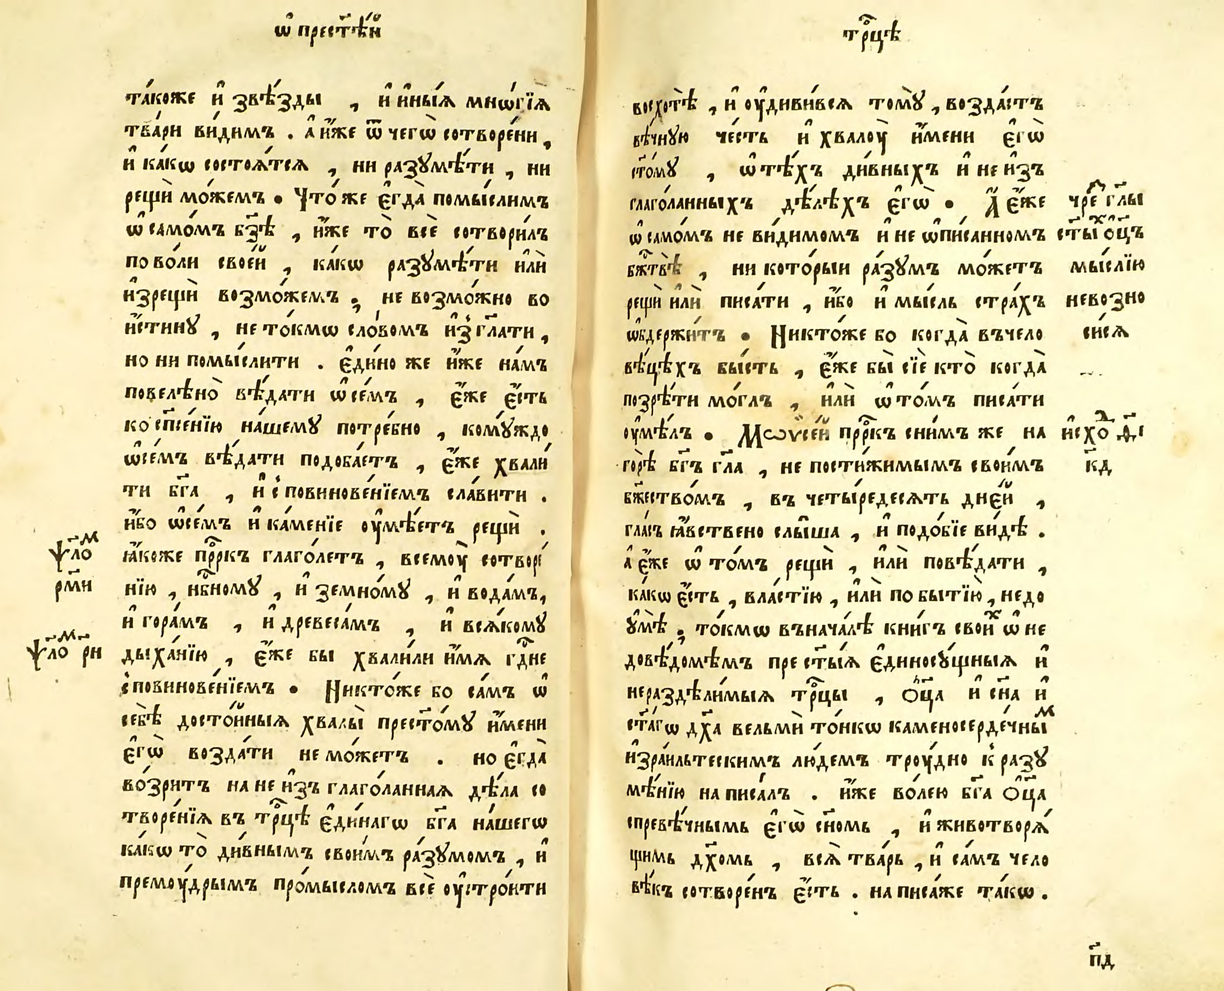 ѡ҆ прест҃ѣ́й
та́коже и҆ ѕвѣ́зды , и҆ и҆ны́ѧ мнѡ́гїѧ
тва́ри ви́димъ . а҆ и҆́же ѿ чегѡ̀ сотворе́ни ,
и҆ ка́кѡ состоѧ́тсѧ , ни разꙋмѣ́ти , ни
рещѝ мо́жемъ • Что́ же є҆гда̀ помы́слимъ
ѡ҆ само́мъ бз҃ѣ , и҆́же то̀ всѐ сотвори́лъ
по во́ли свое́й , ка́кѡ разꙋмѣ́ти и҆лѝ
и҆зрещѝ возмо́жемъ , не возмо́жно во
и҆́стинꙋ , не то́кмѡ сло́вомъ и҆з̾гл҃ати ,
но ни помы́слити . є҆ди́но же и҆́же на́мъ
повелѣно̀ вѣ́дати ѡ҆ се́мъ , є҆́же є҆́сть
ко сп҃се́нїю на́шемꙋ потре́бно , комꙋ́ждо
ѡ҆ се́мъ вѣ́дати подоба́етъ , є҆́же хвали́
ти бг҃а , и҆ с̾повинове́нїемъ сла́вити .
и҆́бо ѡ҆ се́мъ и҆ ка́менїе ᲂу҆мѣ́етъ рещѝ .
ꙗ҆́коже прⷪ҇ркъ глаго́летъ , всемᲂу̀ сотворе́
нїю , нбⷭ҇номꙋ , и҆ земно́мꙋ , и҆ вода́мъ,
и҆ гора́мъ , и҆ древеса́мъ , и҆ всѧ́комꙋ
дыха́нїю , є҆́же бы хвали́ли и҆́мѧ гдⷭ҇не
с̾повинове́нїемъ • Никто́же бо са́мъ ѡ҆
себѣ̀ досто́йныѧ хвалы̀ прест҃о́мꙋ и҆́мени
є҆гѡ̀ возда́ти не мо́жетъ . но є҆гда̀
во́зритъ на не и҆з̾глаго́ланнаѧ дѣ́ла со
творе́нїѧ въ трⷪ҇цѣ є҆ди́нагѡ бг҃а на́шегѡ
ка́кѡ то̀ ди́внымъ свои́мъ ра́зꙋмомъ , и҆
премᲂу́дрымъ про́мысломъ всѐ ᲂу҆стро́ити
ѱало́ⷨ
рм҃и
ѱало́ⷨ рн
трⷪ҇цѣ
восхотѣ̀ , и҆ ᲂу҆диви́всѧ томꙋ̀ , возда́стъ
вѣ́чнꙋю че́сть и҆ хвалᲂу̀ и҆́мени є҆гѡ̀
ст҃о́мꙋ , ѡ҆ тѣ́хъ ди́вныхъ и҆ не и҆з̾
глаго́ланныхъ дѣ́лѣхъ є҆гѡ̀ • А҆ є҆́же
ѡ҆ само́мъ не ви́димомъ и҆ не ѡ҆пи́санномъ
бж҃твѣ̀ , ни кото́рыи ра́зꙋмъ мо́жетъ
рещѝ и҆лѝ писа́ти , и҆́бо и҆ мы́сль стра́хъ
ѡ҆бдержи́тъ • Никто́же бо когда̀ въ чело
вѣ́цѣхъ бы́сть , є҆́же бы̀ сїѐ кто̀ когда̀
позрѣ́ти мо́глъ , и҆лѝ ѡ҆ то́мъ писа́ти
ᲂу҆мѣ́лъ • Мѡѷсе́й прⷪ҇ркъ сни́мъ же на
горѣ̀ бг҃ъ гл҃а , не постижи́мымъ свои́мъ
бж҃ество́мъ , въ четы́редесѧть дне́й ,
гла́съ ꙗ҆́вствено слы́ша , и҆ подо́бїе ви́дѣ .
а҆ є҆́же ѡ҆ то́мъ рещѝ , и҆лѝ повѣ́дати ,
ка́кѡ є҆́сть , вла́стїю , и҆лѝ по бытїю̀ , недо
ꙋ҆мѣ̀ , то́кмѡ въ нача́лѣ кни́гъ свои́ⷯ ѡ҆ не
довѣ́домѣмъ прест҃ы́ѧ є҆диносꙋ́щныѧ и҆
нераздѣли́мыѧ трⷪ҇цы , Ѻ҆ц҃а и҆ сн҃а и҆
ст҃а́гѡ дх҃а вельмѝ то́нкѡ каменосерде́чныⷨ
и҆зра́ильтескимъ лю́демъ трᲂу́дно к̾ разꙋ
мѣ́нїю написа́лъ . и҆́же во́лею бг҃а Ѻ҆ц҃а
спревѣ́чнымъ є҆гѡ̀ сн҃омь , и҆ животворѧ́
щимь дх҃омь , всѧ̀ тва́рь , и҆ са́мъ чело
вѣ́къ сотворе́нъ є҆́сть . написа́же та́кѡ .
чре гл҃ы
ст҃ы́ⷯ ѻ҆ц҃ъ
мы́слїю
невозно
си́сѧ
и҆схо́ⷣ гл
к҃д
п҃д